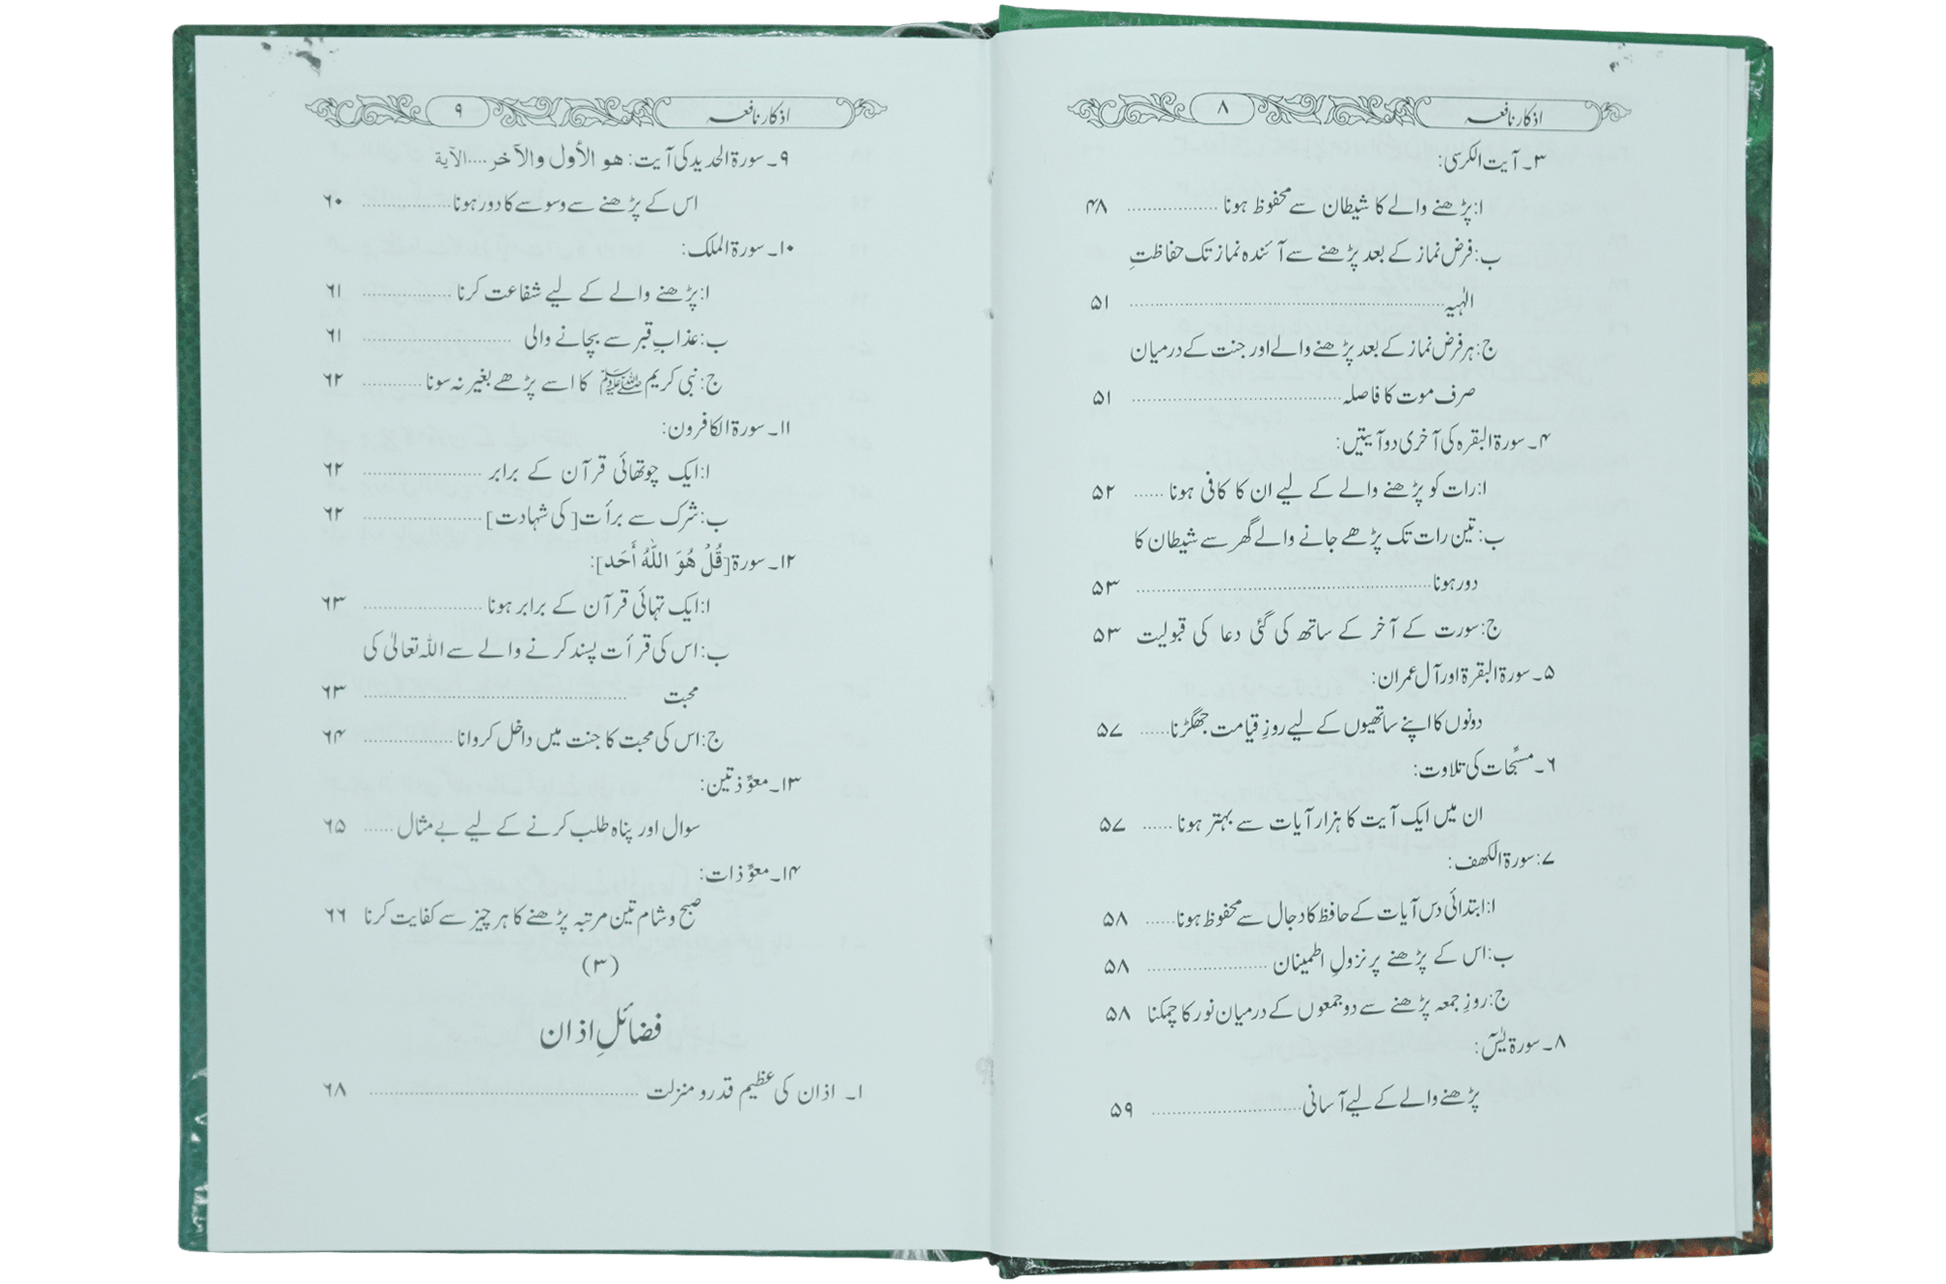 اذکار نافعہ ۸
۳۔ آیت الکرسی:
ا: پڑھنے والے کا شیطان سے محفوظ ہونا .................. ۴۸
ب: فرض نماز کے بعد پڑھنے سے آئندہ نماز تک حفاظتِ
الٰہیہ .................. ۵۱
ج: ہر فرض نماز کے بعد پڑھنے والے اور جنت کے درمیان
صرف موت کا فاصلہ .................. ۵۱
۴۔ سورۃ البقرہ کی آخری دو آیتیں:
ا: رات کو پڑھنے والے کے لیے ان کا کافی ہونا ...... ۵۲
ب: تین رات تک پڑھے جانے والے گھر سے شیطان کا
دور ہونا .................. ۵۳
ج: سورت کے آخر کے ساتھ کی گئی دعا کی قبولیت ۵۳
۵۔ سورۃ البقرۃ اور آل عمران:
دونوں کا اپنے ساتھیوں کے لیے روزِ قیامت جھگڑنا ...... ۵۷
۶۔ مسبِّحات کی تلاوت:
ان میں ایک آیت کا ہزار آیات سے بہتر ہونا ...... ۵۷
۷: سورۃ الکھف:
ا: ابتدائی دس آیات کے حافظ کا دجال سے محفوظ ہونا ...... ۵۸
ب: اس کے پڑھنے پر نزولِ اطمینان .................. ۵۸
ج: روزِ جمعہ پڑھنے سے دو جمعوں کے درمیان نور کا چمکنا ۵۸
۸۔ سورۃ یٰسٓ:
پڑھنے والے کے لیے آسانی .................. ۵۹
اذکار نافعہ ۹
۹۔ سورۃ الحدید کی آیت: هو الأول والآخر ....الآیة
اس کے پڑھنے سے وسوسے کا دور ہونا .................. ۶۰
۱۰۔ سورۃ الملک:
ا: پڑھنے والے کے لیے شفاعت کرنا .................. ۶۱
ب: عذابِ قبر سے بچانے والی .................. ۶۱
ج: نبی کریم ﷺ کا اسے پڑھے بغیر نہ سونا ............ ۶۲
۱۱۔ سورۃ الکافرون:
ا: ایک چوتھائی قرآن کے برابر .................. ۶۲
ب: شرک سے برأت [کی شہادت] .................. ۶۲
۱۲۔ سورۃ [قُلْ هُوَ اللّٰهُ أَحَد]:
ا: ایک تہائی قرآن کے برابر ہونا .................. ۶۳
ب: اس کی قرأت پسند کرنے والے سے اللہ تعالیٰ کی
محبت .................. ۶۳
ج: اس کی محبت کا جنت میں داخل کروانا .................. ۶۴
۱۳۔ معوِّذتین:
سوال اور پناہ طلب کرنے کے لیے بے مثال ...... ۶۵
۱۴۔ معوِّذات:
صبح و شام تین مرتبہ پڑھنے کا ہر چیز سے کفایت کرنا ۶۶
(۳)
فضائلِ اذان
ا۔ اذان کی عظیم قدر و منزلت .................. ۶۸